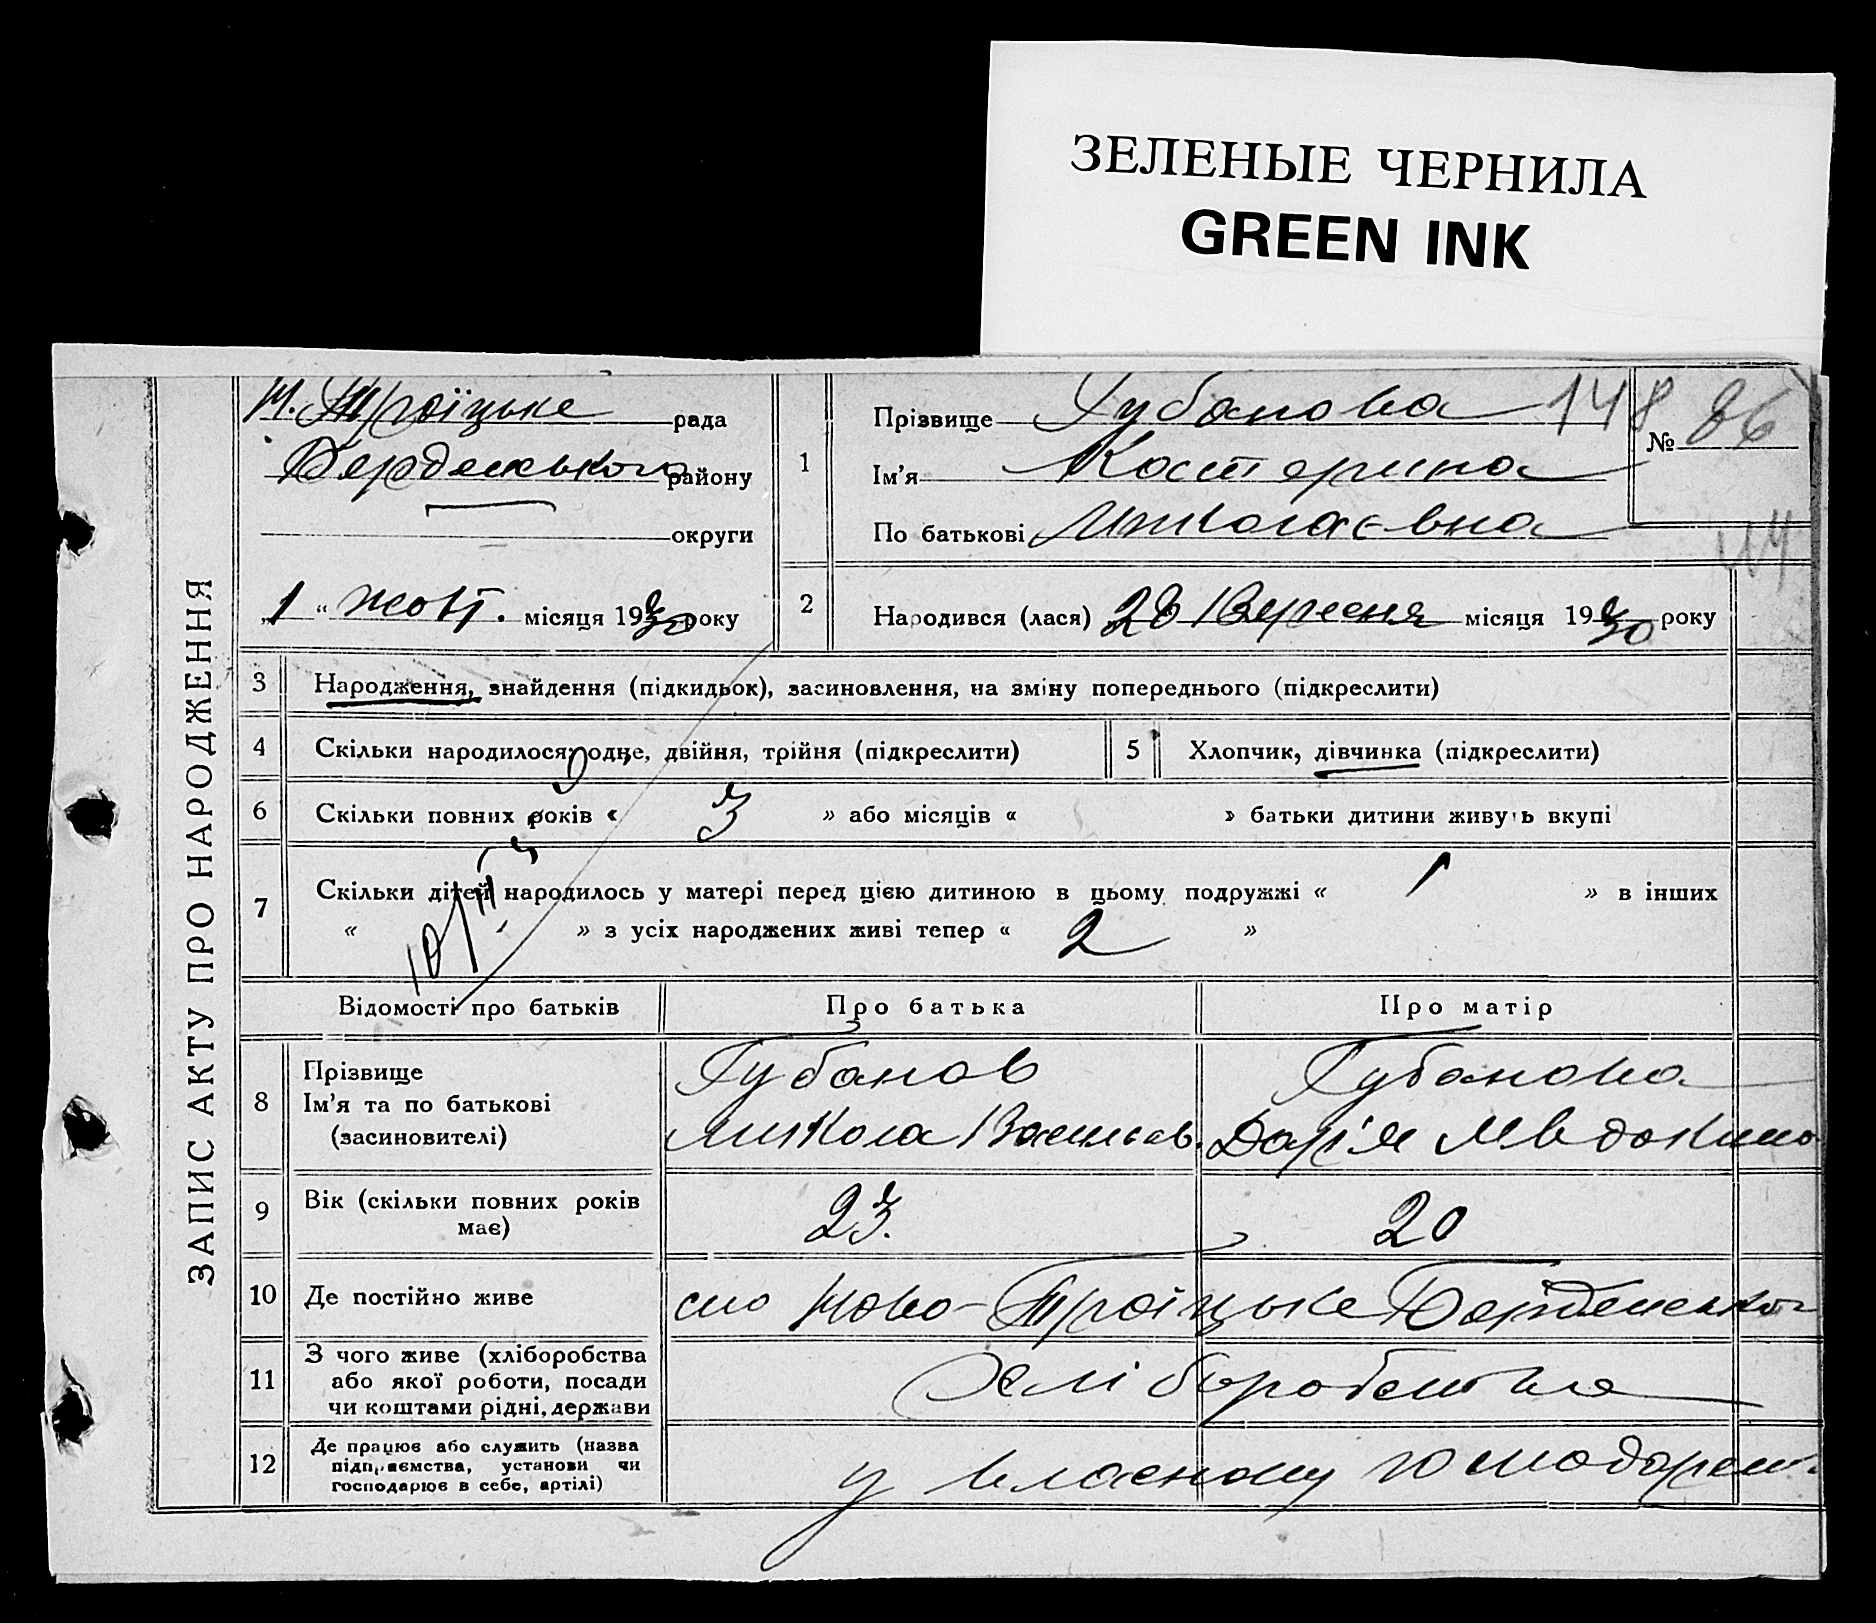 ЗЕЛЕНЫЕ ЧЕРНИЛА
GREEN INK
ЗАПИС АКТУ ПРО НАРОДЖЕННЯ
Н. Троїцьке рада
Бердянського району
округи
„1“ жовт. місяця 1930 року
1
Прізвище Губанова
Ім'я Катерина
По батькові Миколаєвна
148
№ 86
2 Народився (лася) 28 Вересня місяця 1930 року
3 Народження, знайдення (підкидьок), засиновлення, на зміну попереднього (підкреслити)
4 Скільки народилося: одне, двійня, трійня (підкреслити)
5 Хлопчик, дівчинка (підкреслити)
6 Скільки повних років « 3 » або місяців « » батьки дитини живуть вкупі
7 Скільки дітей народилось у матері перед цією дитиною в цьому подружжі « 1 » в інших
« » з усіх народжених живі тепер « 2 »
Відомості про батьків Про батька Про матір
8 Прізвище
Ім'я та по батькові
(засиновителі)
Губанов
Микола Васильєв.
Губанова
Дарія
9 Вік (скільки повних років
має)
23.
20
10 Де постійно живе
село Ново-Троїцьке Бердянського
11 З чого живе (хліборобства
або якої роботи, посади
чи коштами рідні, держави
Хліборобства
12 Де працює або служить (назва
підприємства, установи чи
господарює в себе, артілі)
у власному господарст.